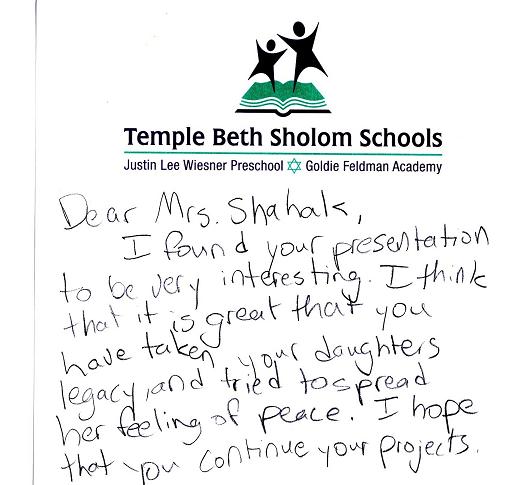 Temple Beth Sholom Schools
Justin Lee Wiesner Preschool Goldie Feldman Academy
Dear Mrs. Shahak,
I found your presentation
to be very interesting. I think
that it is great that you
have taken your daughters
legacy, and tried to spread
her feeling of peace. I hope
that you continue your projects.